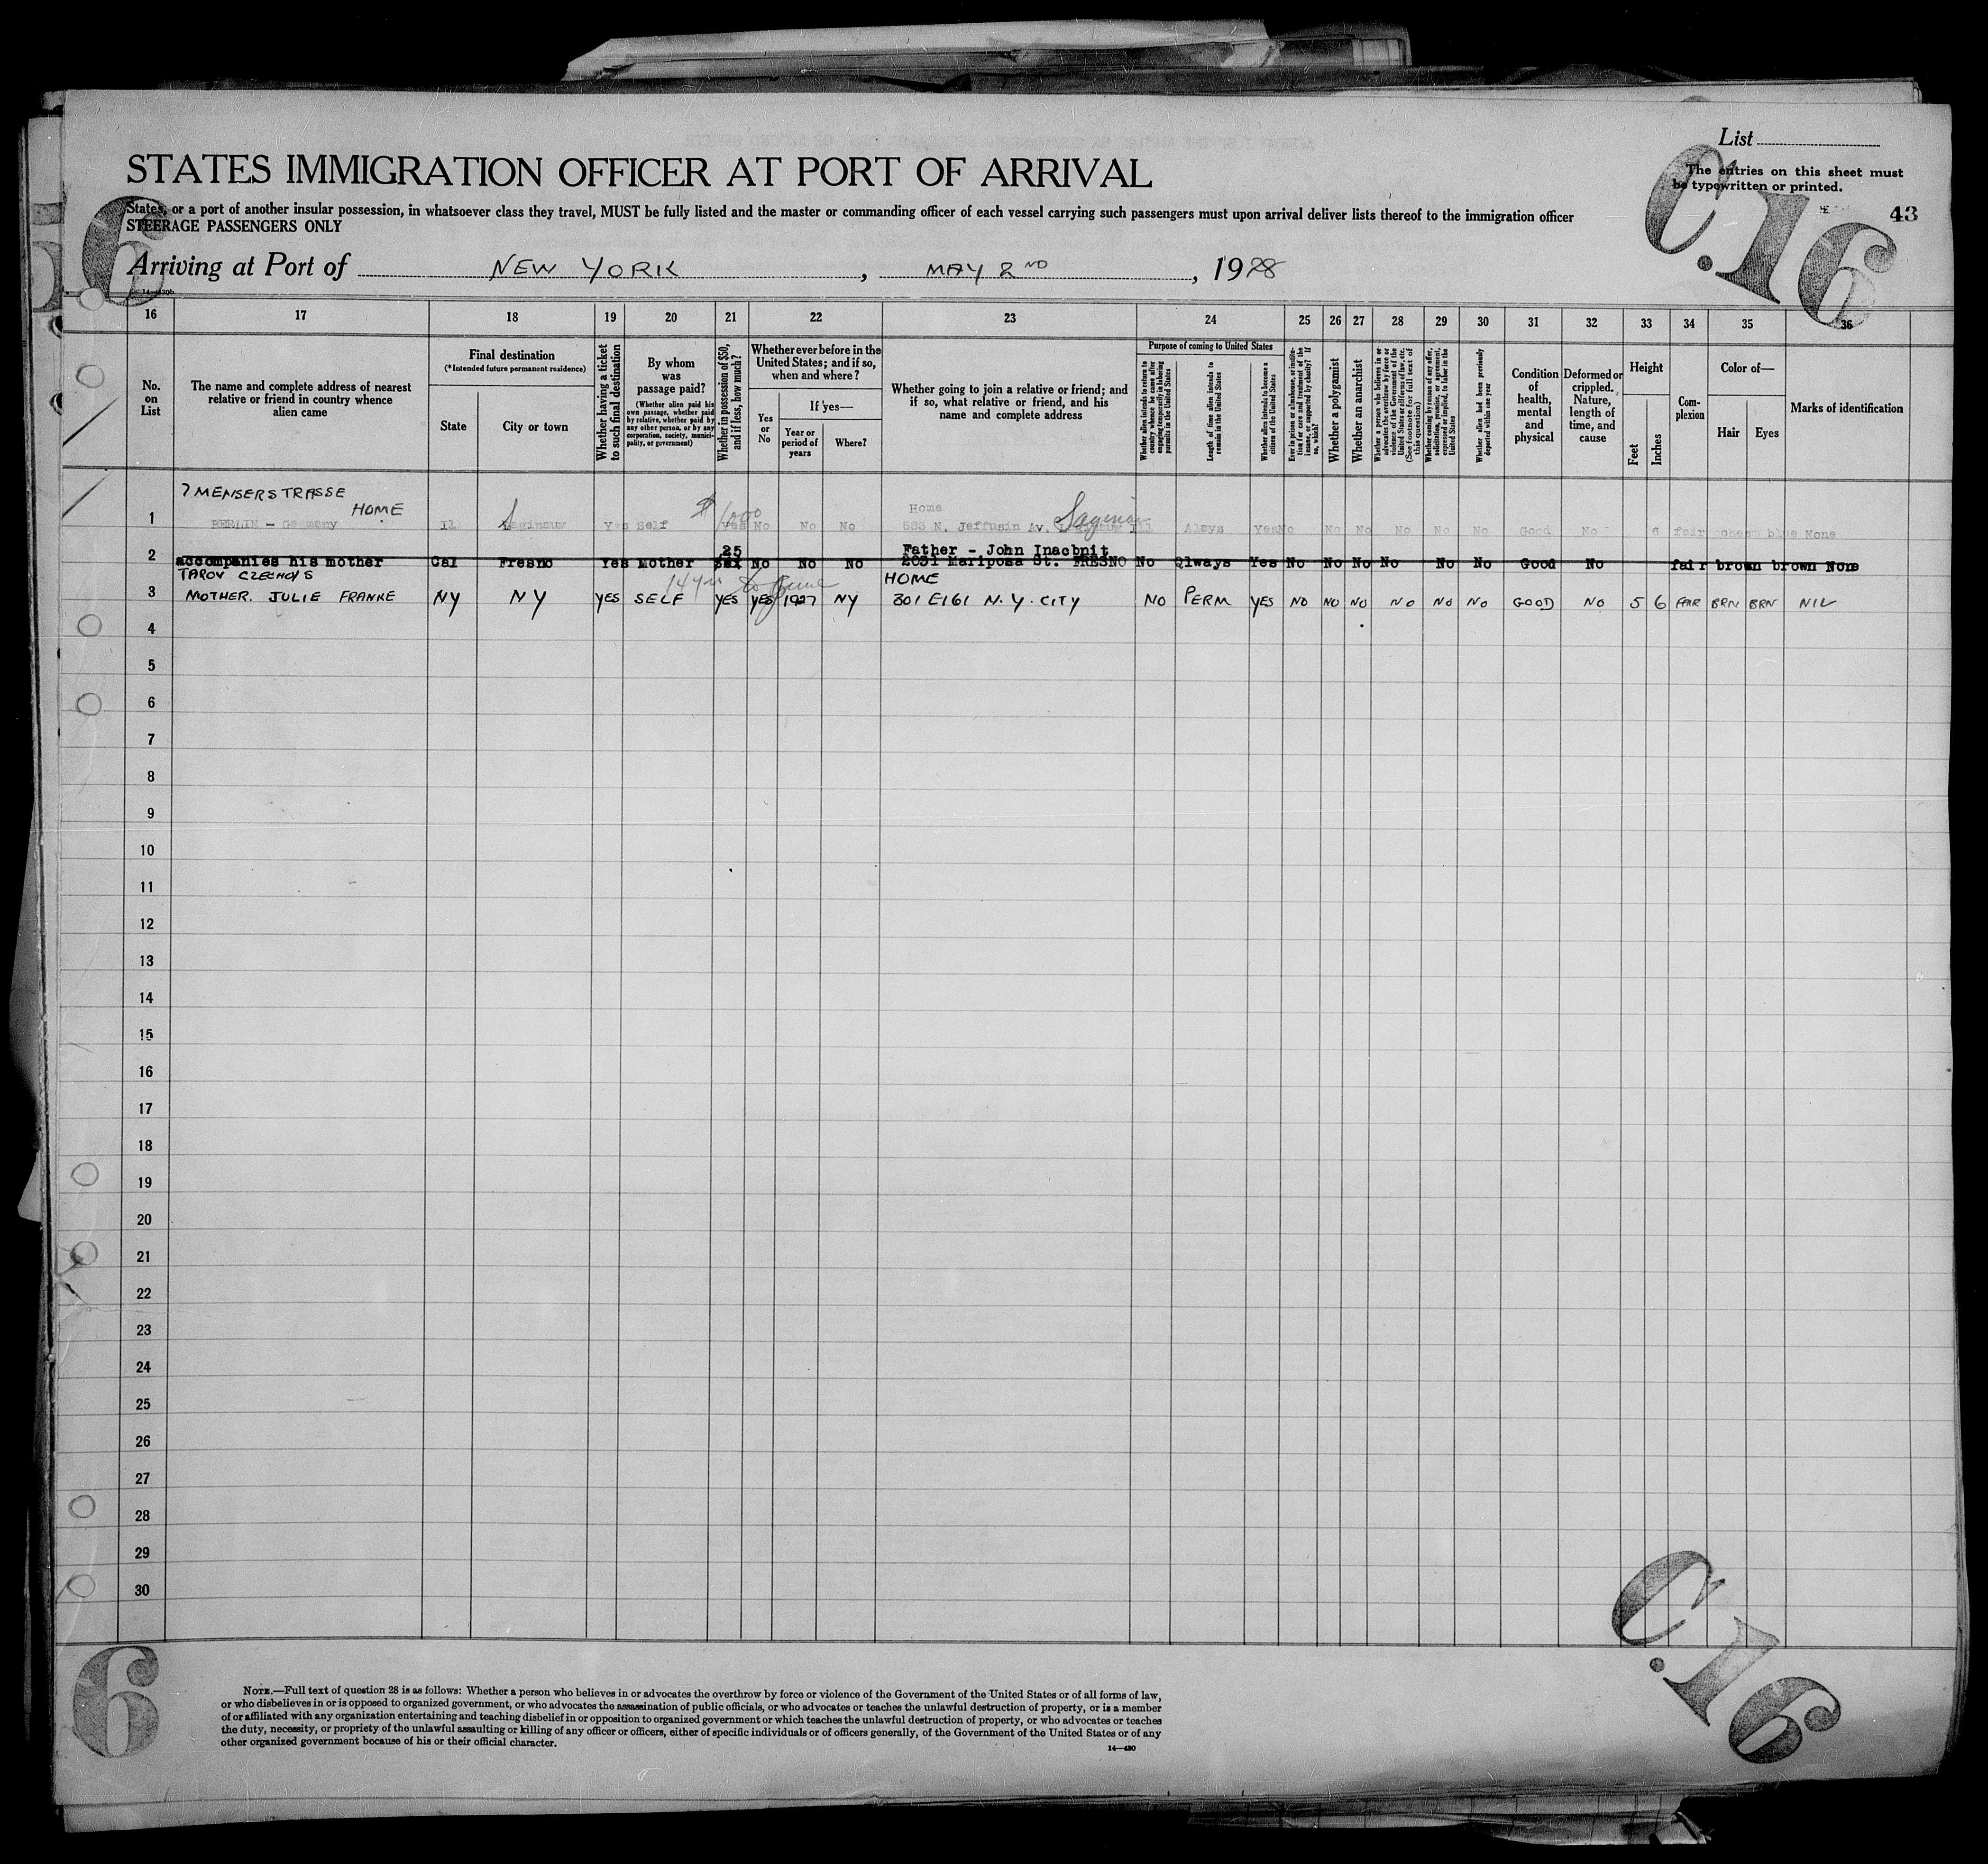 List
The entries on this sheet must
be typewritten or printed.
43
C.16
6
STATES IMMIGRATION OFFICER AT PORT OF ARRIVAL
States, or a port of another insular possession, in whatsoever class they travel, MUST be fully listed and the master or commanding officer of each vessel carrying such passengers must upon arrival deliver lists thereof to the immigration officer
STEERAGE PASSENGERS ONLY
Arriving at Port of NEW YORK, MAY 2ND, 1928
16 17 18 19 20 21 22 23 24 25 26 27 28 29 30 31 32 33 34 35 36
No. on List
The name and complete address of nearest relative or friend in country whence alien came
Final destination
(*Intended future permanent residence)
State
City or town
Whether having a ticket to such final destination
By whom was passage paid?
(Whether alien paid his own passage, whether paid by relative, whether paid by any other person, or by any corporation, society, municipality, or government)
Whether in possession of $50, and if less, how much?
Whether ever before in the United States; and if so, when and where?
Yes or No
If yes—
Year or period of years
Where?
Whether going to join a relative or friend; and if so, what relative or friend, and his name and complete address
Purpose of coming to United States
Whether alien intends to return to country whence he came after engaging temporarily in laboring pursuits in the United States
Length of time alien intends to remain in the United States
Whether alien intends to become a citizen of the United States
Ever in prison or almshouse, or institution for care and treatment of the insane, or supported by charity? If so, which?
Whether a polygamist
Whether an anarchist
Whether a person who believes in or advocates the overthrow by force or violence of the Government of the United States or all forms of law, etc. (See footnote for full text of this question)
Whether coming by reason of any offer, solicitation, promise, or agreement, expressed or implied, to labor in the United States
Whether alien had been previously deported within one year
Condition of health, mental and physical
Deformed or crippled. Nature, length of time, and cause
Height
Feet
Inches
Complexion
Color of—
Hair
Eyes
Marks of identification
7 MENSERSTRASSE
HOME
1 BERLIN - Germany Ill Saginauw Yes Self $1000 Yes No No No
Home
583 N. Jeffusin Av. Saginaw Ill Alwys Yes No No No No No No Good No 6 fair blue None
25
Father - John Inaebnit
2 accompanies his mother Cal Fresno Yes Mother No No No 2031 Mariposa St. FRESNO No Qlways Yes No No No No No No Good No fair brown brown None
14 yrs to June
HOME
3 MOTHER. JULIE FRANKE NY NY YES SELF YES YES 1927 NY 301 E161 N.Y. CITY NO PERM YES NO NO NO NO NO NO GOOD NO 5 6 FAIR BRN BRN NIL
4
5
6
7
8
9
10
11
12
13
14
15
16
17
18
19
20
21
22
23
24
25
26
27
28
29
30
NOTE.—Full text of question 28 is as follows: Whether a person who believes in or advocates the overthrow by force or violence of the Government of the United States or of all forms of law,
or who disbelieves in or is opposed to organized government, or who advocates the assassination of public officials, or who advocates or teaches the unlawful destruction of property, or is a member
of or affiliated with any organization entertaining and teaching disbelief in or opposition to organized government or which teaches the unlawful destruction of property, or who advocates or teaches
the duty, necessity, or propriety of the unlawful assaulting or killing of any officer or officers, either of specific individuals or of officers generally, of the Government of the United States or of any
other organized government because of his or their official character.
14—430
6
C.16